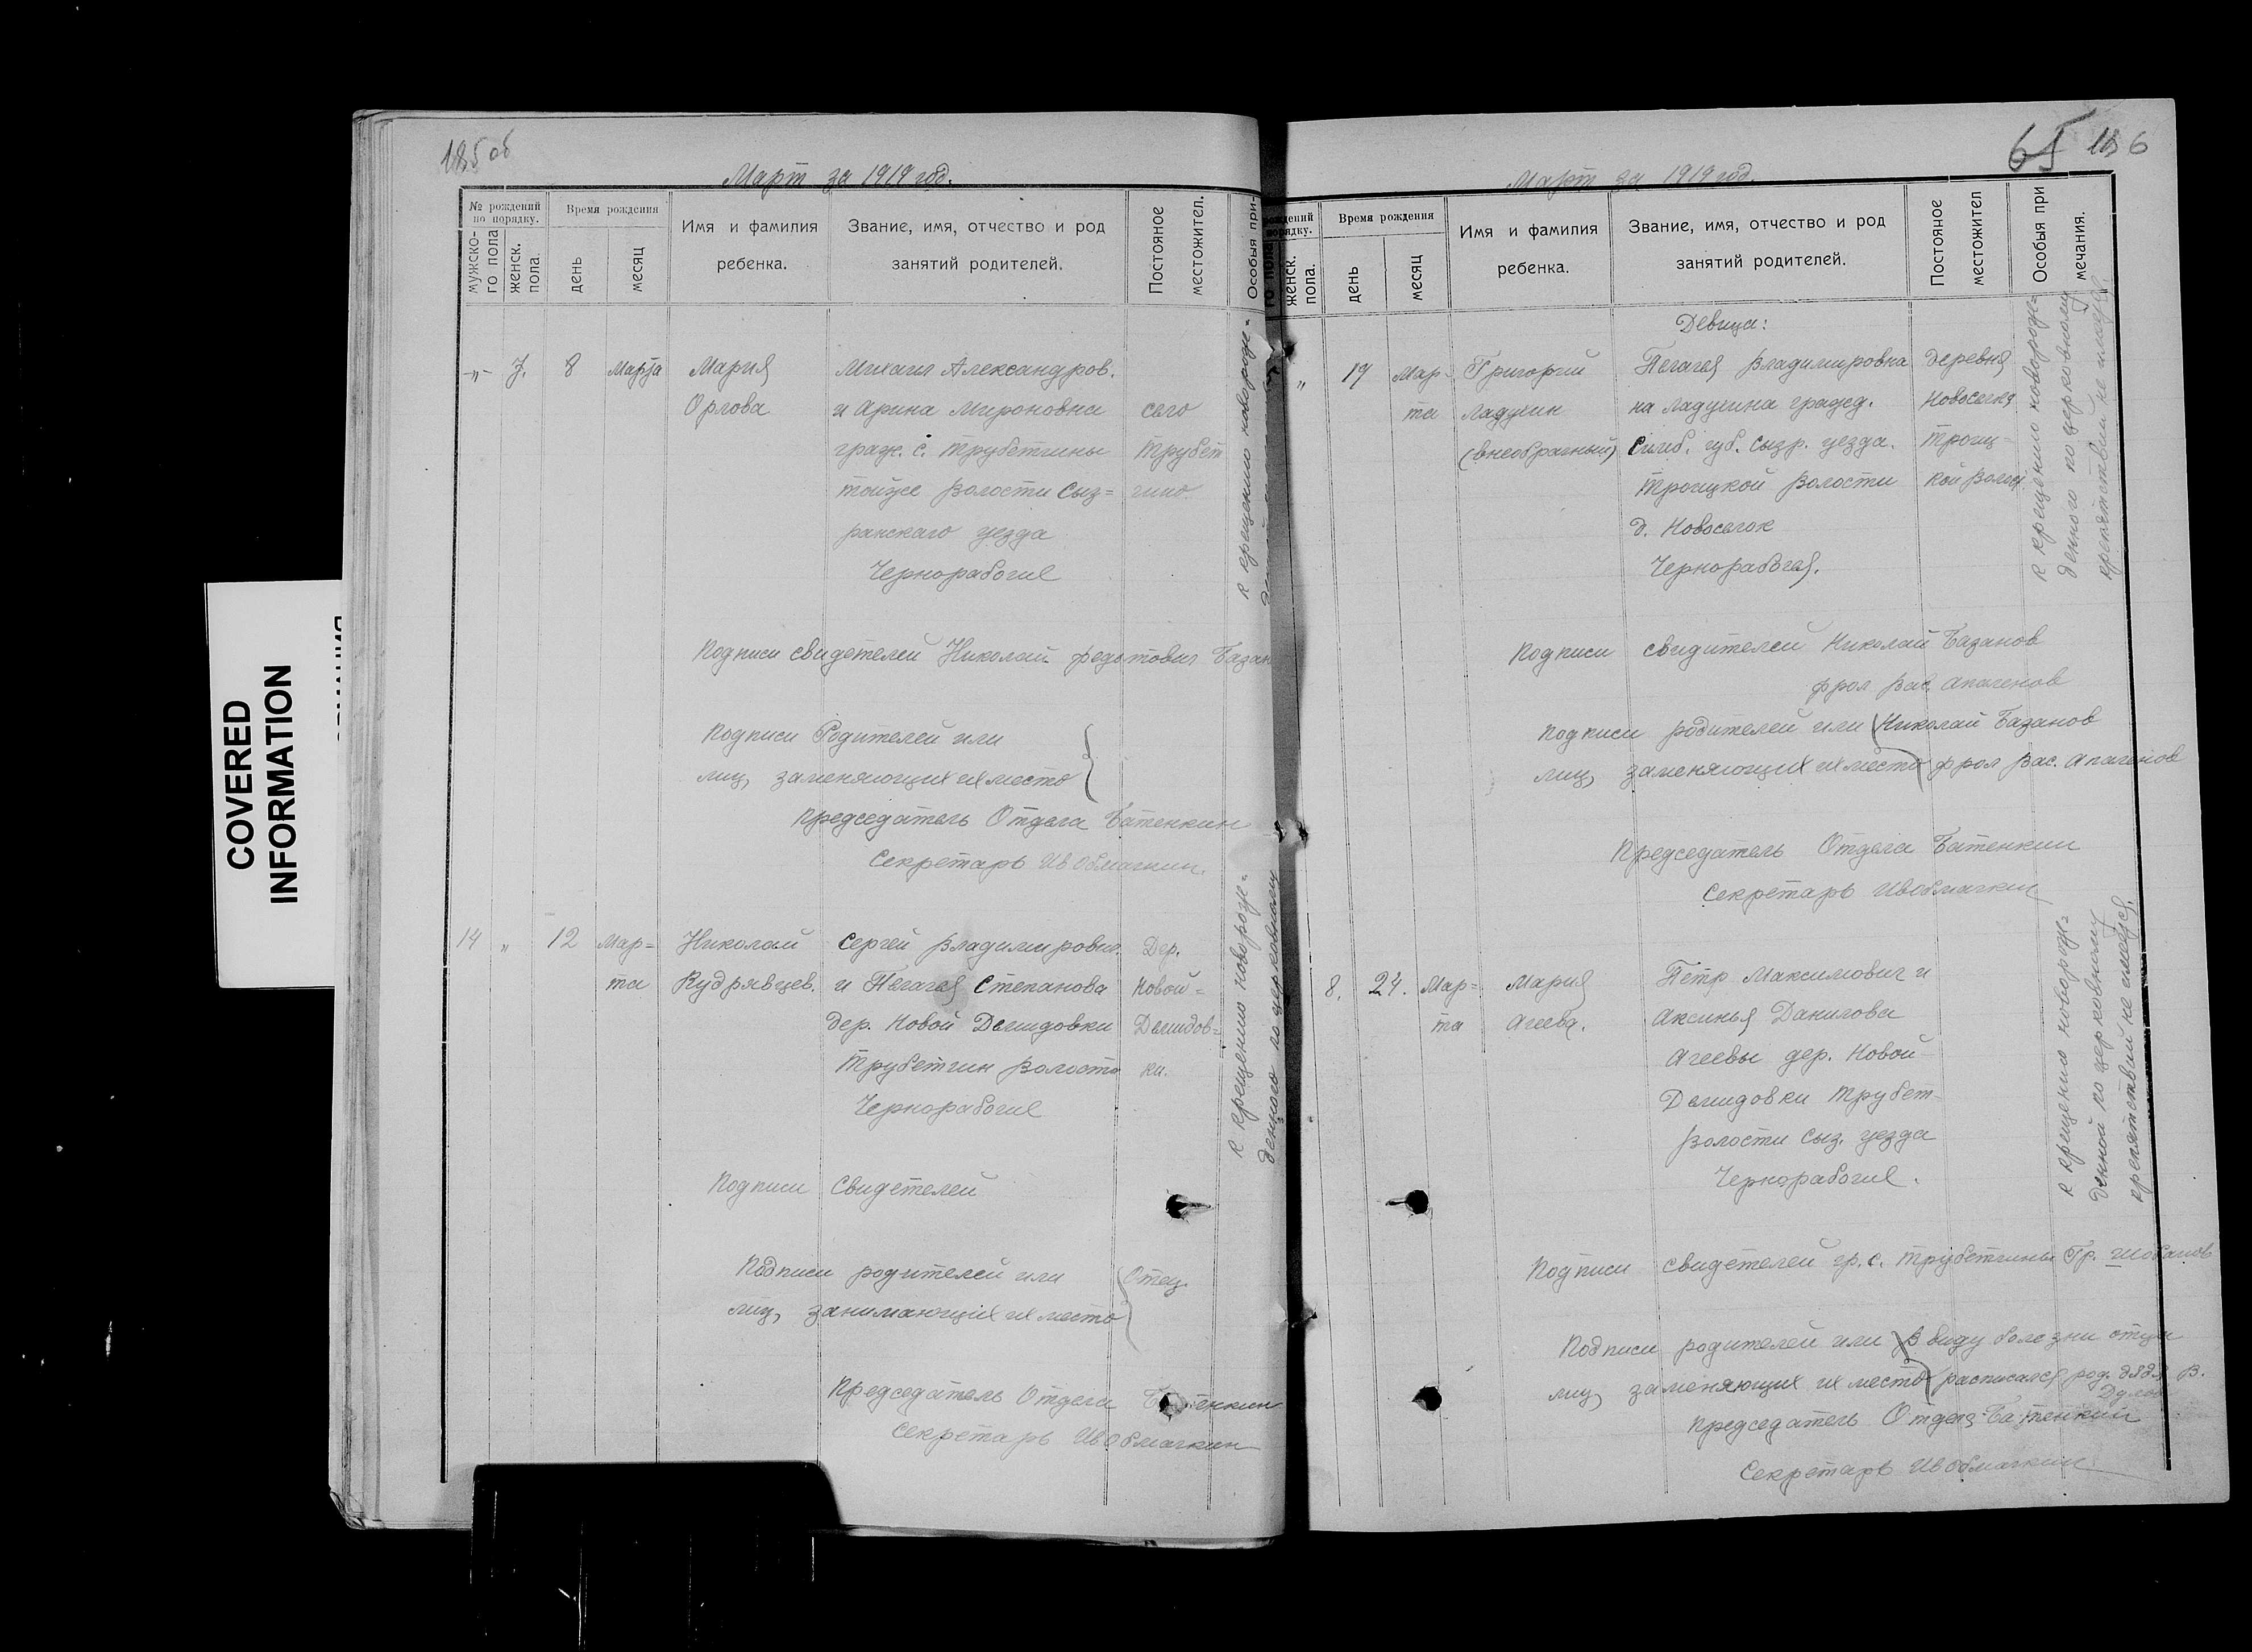 185 об
Март за 1919 год.
№ рождений
по порядку.
мужско-
го пола
женск.
пола.
Время рождения
день
месяц
Имя и фамилия
ребенка.
Звание, имя, отчество и род
занятий родителей.
Постояное
местожител.
Особыя при-
-„- 7. 8 Марта
Мария
Орлова
Михаил Александров.
и Арина Мироновна
граж. с. Трубетчины
тойже волости Сыз=
ранскаго уезда
Чернорабочие
село
Трубет
чино.
К крещению новорожде=
Подписи свидетелей Николай Федотович Базан
Подписи Родителей или
лиц, заменяющих их место
Председатель Отдела Батенкин
Секретарь
14 „ 12 Мар=
та
Николай
Кудрявцев.
Сергей Владимирович.
и Пелагея Степанова
дер. Новой Демидовки
Трубетчин волости
Чернорабочие
Дер.
Новой=
Демидов=
ки.
К крещению новорожде=
денного по церковному
Подписи свидетелей
Подписи родителей или
лиц, занимающих их место
Отец.
Председатель Отдела Батенкин
Секретарь
65 186
Март за 1919 год.
рождений
порядку.
го пола
женск.
пола.
Время рождения
день
месяц
Имя и фамилия
ребенка.
Звание, имя, отчество и род
занятий родителей.
Постояное
местожител
Особыя при
мечания.
„ 19 Мар=
та
Григорий
Ладухин
(внебрачный)
Девица:
Пелагея Владимировна
на Ладухина гражд.
Симб. губ. Сызр. уезда.
Троицкой волости
д. Новоселок
Чернорабочая.
деревня
Новоселки
Троиц=
кой волос
К крещению новорожде=
денного по церковному
препятствий не имеется.
Подписи свидителей Николай Базанов
Фрол Вас. Апаленов
Подписи родителей или Николай Базанов
лиц, заменяющих их место Фрол Вас. Апаленов
Председатель Отдела Батенкин
Секретарь
8. 24. Мар=
та
Мария
Агеева.
Петр Максимович и
Аксинья Данилова
Агеевы дер. Новой
Демидовки Трубет-
волости Сыз. уезда
Чернорабочие.
К крещению новорожде=
денной по церковному
препятствий не имеется.
Подписи свидетелей гр. с. Трубетчины Гр.
Подписи родителей или В виду болезни отца
лиц, заменяющих их место расписался род. дядя В.
Председатель Отдела Батенкин
Секретарь
COVERED
INFORMATION